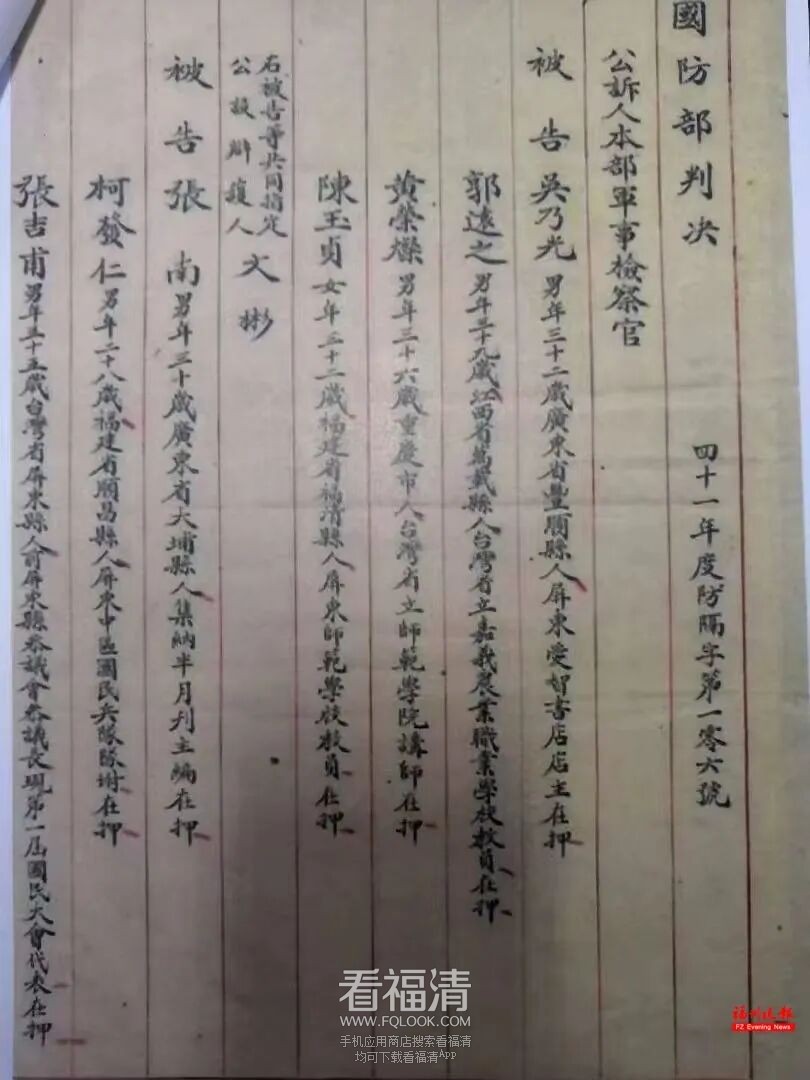 國防部判决
四十一年度防隔字第一零六號
公訴人本部軍事檢察官
被告吳乃光男年三十二歲廣東省豐順縣人屏東愛智書店店主在押
郭遠之男年三十九歲江西省萬載縣人台灣省立嘉義農業職業學校教員在押
黃榮燦男年三十六歲重慶市人台灣省立師範學院講師在押
陳玉貞女年三十二歲福建省福清縣人屏東師範學校教員在押
右被告等共同指定
公設辯護人
文彬
被告張南男年三十歲廣東省大埔縣人集納半月刊主編在押
柯發仁男年二十八歲福建省順昌縣人屏東中區國民兵隊隊附在押
張吉甫男年三十五歲台灣省屏東縣人前屏東縣參議會參議長現第一屆國民大會代表在押
看福清
WWW.FQLOOK.COM
手机应用商店搜索看福清
均可下载看福清App
福州晚报
FZ Evening News